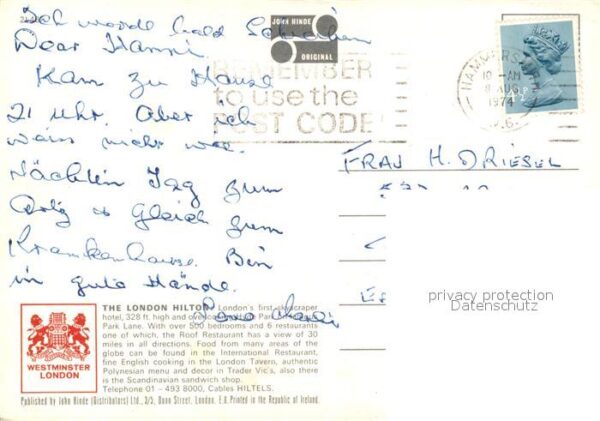 Ich werde bald Schreiben
Dear Hanni
Kam zu Hause
21 Uhr. Aber ich
weiss nicht was.
Nächsten Tag zum
Gleich zum
Krankenhause. Bin
in gute Hände.
JOHN HINDE
ORIGINAL
REMEMBER
to use the
POST CODE
HAMMERSMITH
10 - AM
8 AUG
1974
W.6.
FRAU H. DRIESEL
privacy protection
Datenschutz
THE LONDON HILTON London's first skyscraper
hotel, 328 ft. high and overlooking Hyde Park
Park Lane. With over 500 bedrooms and 6 restaurants
one of which, the Roof Restaurant has a view of 30
miles in all directions. Food from many areas of the
globe can be found in the International Restaurant,
fine English cooking in the London Tavern, authentic
Polynesian menu and decor in Trader Vic's, also there
is the Scandinavian sandwich shop.
Telephone 01 - 493 8000, Cables HILTELS.
WESTMINSTER
LONDON
Published by John Hinde (Distributors) Ltd., 3/5, Dunn Street, London. E.8. Printed in the Republic of Ireland.